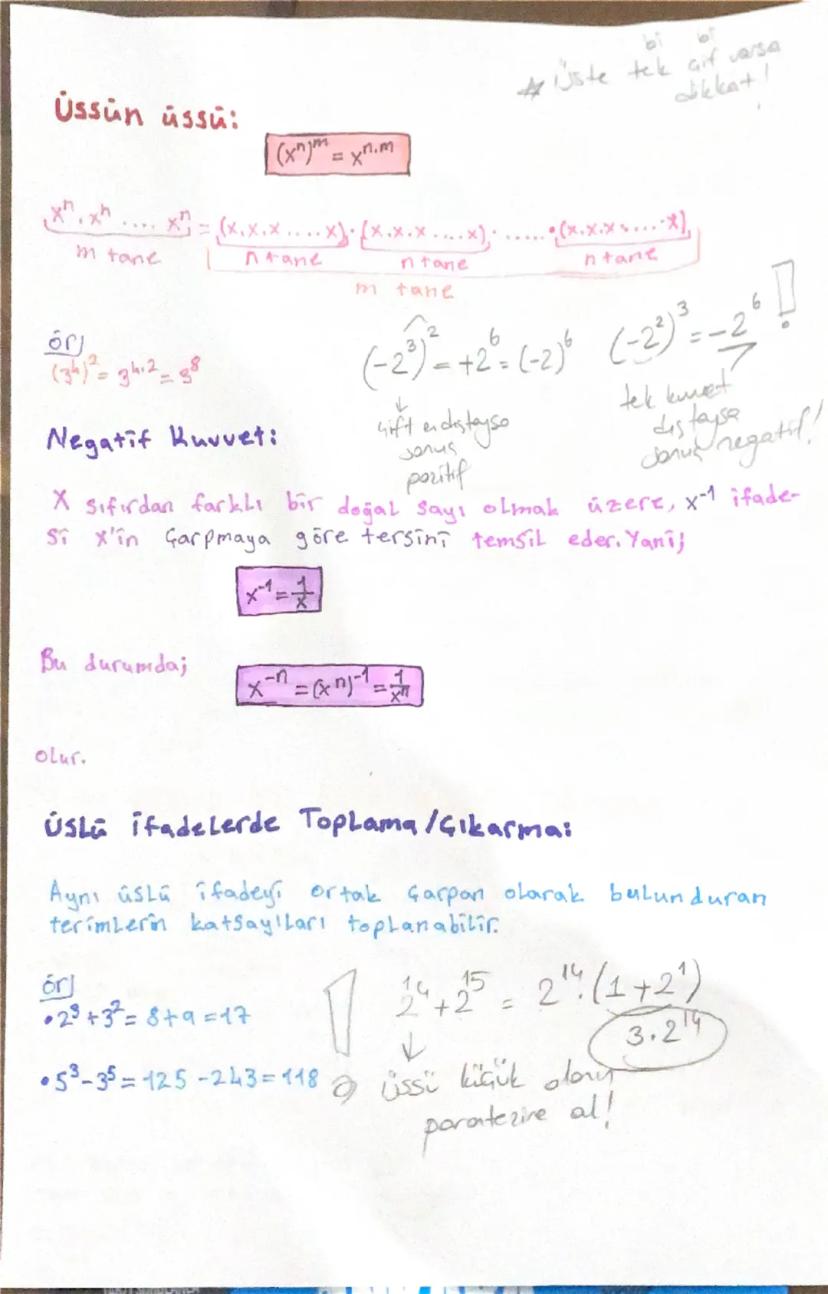 bi bi
☆ Üste tek çift varsa
dikkat!
Üssün üssü:
(xⁿ)ᵐ = xⁿ·ᵐ
xⁿ . xⁿ .... xⁿ = (x.x.x....x).(x.x.x....x)......(x.x.x....x)
m tane n tane n tane n tane
m tane
ör/
(3⁴)² = 3⁴·² = 3⁸
(-2³)² = +2⁶ = (-2)⁶ (-2²)³ = -2⁶ !
↓
çift en dıştaysa
sonuç
pozitif
tek kuvvet
dıştaysa
sonuç negatif!
Negatif Kuvvet:
X sıfırdan farklı bir doğal sayı olmak üzere, x⁻¹ ifade-
si x'in çarpmaya göre tersini temsil eder. Yani;
x⁻¹ = 1/x
Bu durumda;
x⁻ⁿ = (xⁿ)⁻¹ = 1/xⁿ
olur.
Üslü ifadelerde Toplama/Çıkarma:
Aynı üslü ifadeyi ortak çarpan olarak bulunduran
terimlerin katsayıları toplanabilir.
ör/
•2³ + 3² = 8 + 9 = 17
•5³ - 3⁵ = 125 - 243 = 118
! 2¹⁴ + 2¹⁵ = 2¹⁴.(1 + 2¹)
3.2¹⁴
↓
üssü küçük olanı
parantezine al!